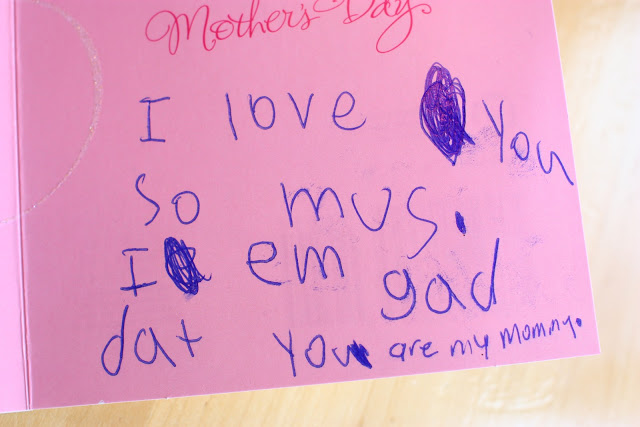 Mother's Day
I love You
So mus.
I em gad
dat you are my mommy.